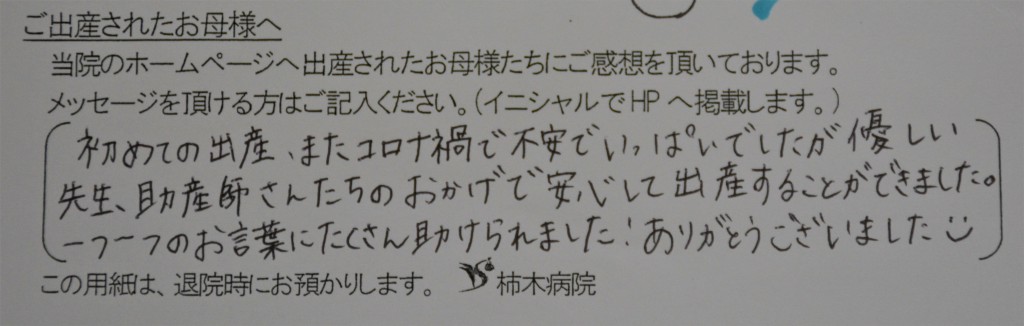 ご出産されたお母様へ
当院のホームページへ出産されたお母様たちにご感想を頂いております。
メッセージを頂ける方はご記入ください。(イニシャルでHPへ掲載します。)
初めての出産、またコロナ禍で不安でいっぱいでしたが優しい
先生、助産師さんたちのおかげで安心して出産することができました。
一つ一つのお言葉にたくさん助けられました!ありがとうございました
この用紙は、退院時にお預かりします。 柿木病院